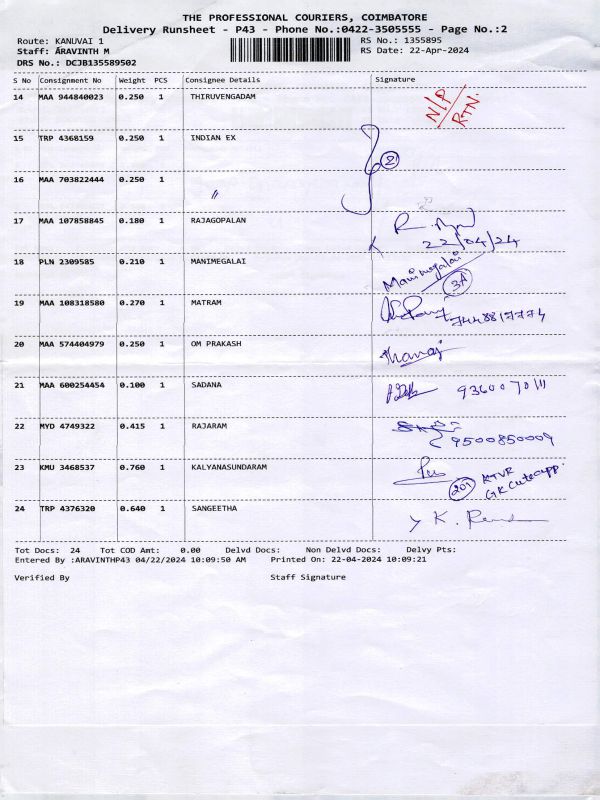 THE PROFESSIONAL COURIERS, COIMBATORE
Delivery Runsheet - P43 - Phone No.:0422-3505555 - Page No.:2
Route: KANUVAI 1 RS No.: 1355895
Staff: ARAVINTH M RS Date: 22-Apr-2024
DRS No.: DCJB135589502
S No Consignment No Weight PCS Consignee Details Signature
14 MAA 944840023 0.250 1 THIRUVENGADAM N/P RTN.
15 TRP 4368159 0.250 1 INDIAN EX 2
16 MAA 703822444 0.250 1 〃
17 MAA 107858845 0.180 1 RAJAGOPALAN 22/04/24
18 PLN 2309585 0.210 1 MANIMEGALAI Manimegalai 3A
19 MAA 108318580 0.270 1 MATRAM
20 MAA 574404979 0.250 1 OM PRAKASH
21 MAA 600254454 0.100 1 SADANA
22 MYD 4749322 0.415 1 RAJARAM 9500850009
23 KMU 3468537 0.760 1 KALYANASUNDARAM 201 KTVR
24 TRP 4376320 0.640 1 SANGEETHA K.
Tot Docs: 24 Tot COD Amt: 0.00 Delvd Docs: Non Delvd Docs: Delvy Pts:
Entered By :ARAVINTHP43 04/22/2024 10:09:50 AM Printed On: 22-04-2024 10:09:21
Verified By Staff Signature